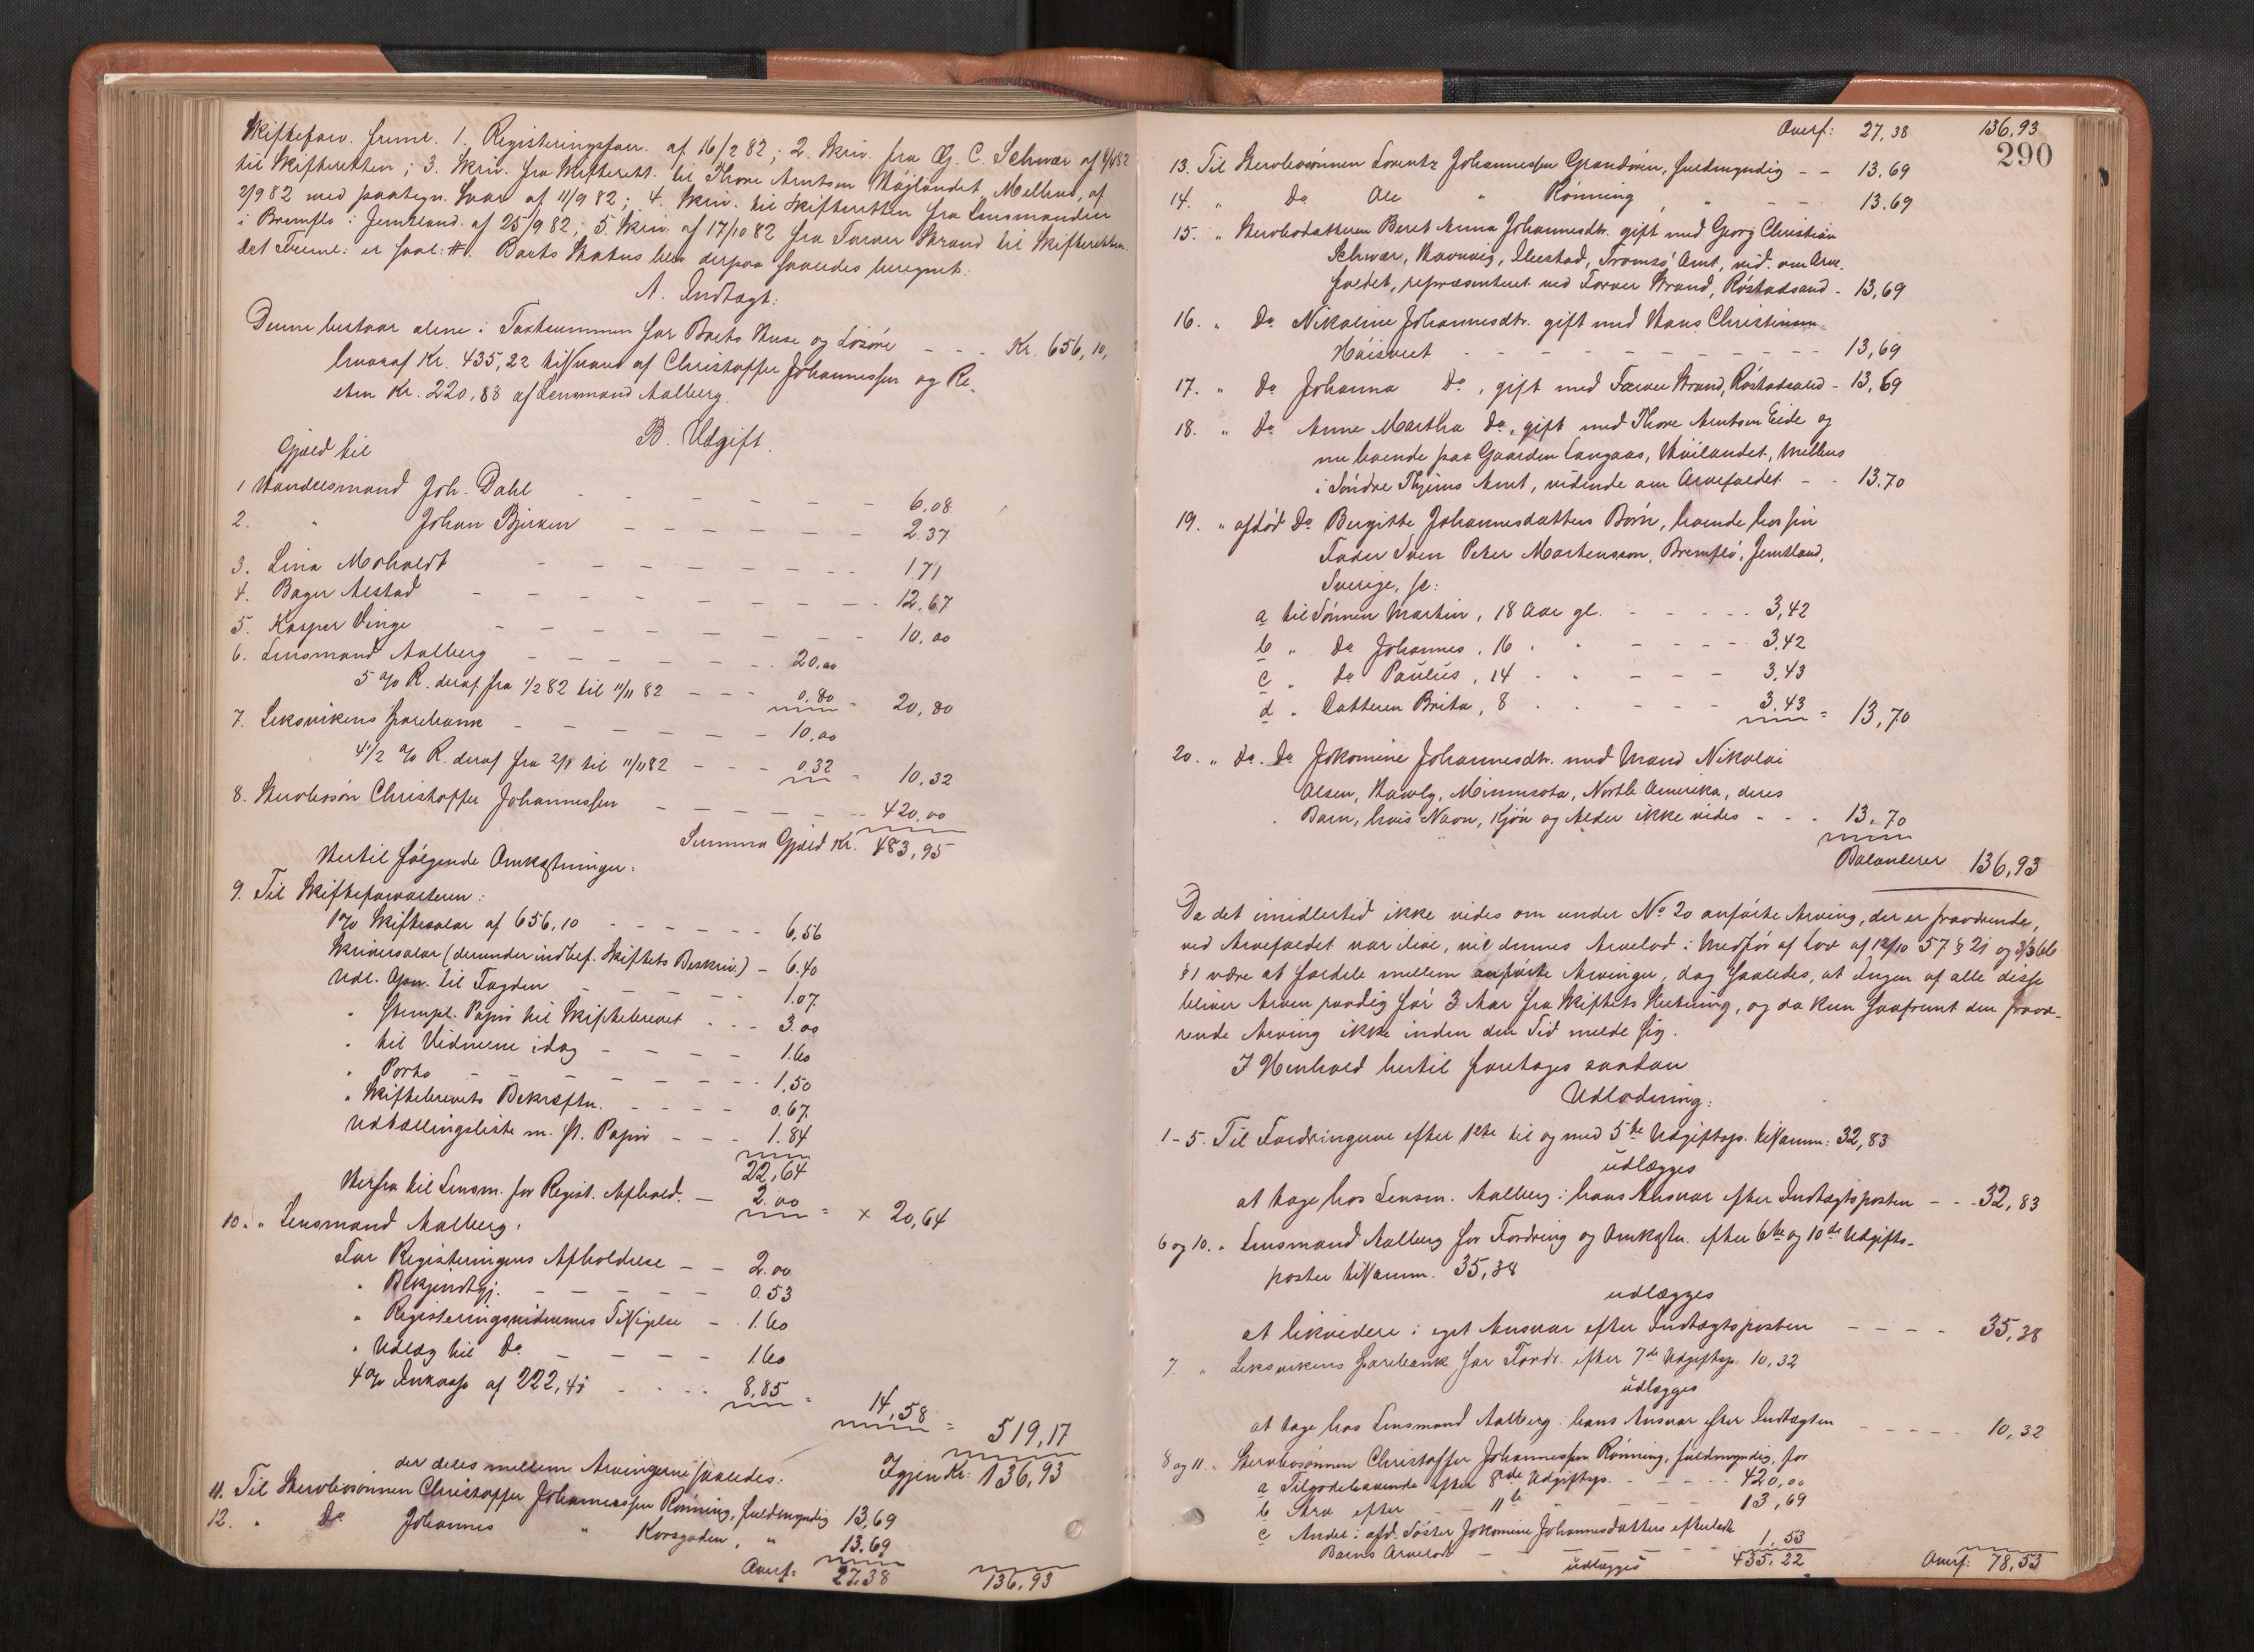 Skifteforv. freml. 1. Registreringsforr. af 16/2 82; 2. Skriv. fra G. C. Schwær af
til Skifteretten; 3. Skriv. fra Skifterett. til Thore Arntsen Højlandet, Melhus, af
2/9 82 med paategn. Svar af 11/9 82; 4. Skriv. til Skifteretten fra Lensmanden
i Bremflo i Jemtland af 25/9 82; 5. Skriv. af 17/10 82 fra Farver Strand til Skifteretten.
Det Freml. er saal. Boets Status blev derpaa saaledes beregnet:
A. Indtægt:
Denne bestaar alene i Taxtsummen for Boets Huse og Løsøre - - - Kr. 656,10,
hvoraf Kr. 435,22 til Ansvar af Christoffer Johannessen og Re-
sten Kr. 220,88 af Lensmand Aalberg.
B. Udgift.
Gjæld til
1 Handelsmand Joh. Dahl - - - - - 6,08
2. " Johan Bjerken - - - - - 2.37
3. Lina Moholdt - - - - - - - 1.71
4. Bager Alstad - - - - - - - 12,67
5. Kasper Vinge - - - - - - - 10,00
6. Lensmand Aalberg - - - - - - 20,00
5 % R. deraf fra 1/2 82 til 11/11 82 - - - 0.80 = 20,80
7. Leksvikens Sparebank - - - - - - 10,00
4 1/2 % R. deraf fra 2/1 til 11/11 82 - - - 0.32 = 10,32
8. Stervbosøn Christoffer Johannessen - - - - - 420,00
Summa Gjæld Kr. 483,95
Hertil følgende Omkostninger:
9. Til Skifteforvalteren:
1 % Skiftesalar af 656,10 - - - - - - 6,56
Skriversalar (derunder indbef. Skiftets Beskriv.) - 6.40
Udl. Gjen. til Fogden - - - - - 1.07
" Stempl. Papir til Skiftebrevet - - - 3.00
" til Vidnerne idag - - - - 1.60
" Porto - - - - - - - 1,50
" Skiftebrevets Bekræftn. - - - - 0.67
Udtællingsliste m. St. Papir - - - 1.84
22,64
Herfra til Lensm. for Regist. Afhold. - 2.00 = x 20,64
10. " Lensmand Aalberg:
For Registreringens Afholdelse - - 2.00
" Bekjendtgj. - - - - - 0.53
" Registreringsvidnernes Tilsigelse - 1.60
" Udlæg til Do - - - - 1.60
4 % Inkasso af 222,45 - - - 8,85 = 14,58 = 519,17
Igjen Kr: 136,93
der deles mellem Arvingerne saaledes:
11. Til Stervbosønnen Christoffer Johannessen Rønning, fuldmyndig 13,69
12. " Do Johannes " Korsgaden, " 13.69
Overf: 27.38 136,93
Overf: 27,38 136,93
290
13. Til Stervbosønnen Lorentz Johannessen Grandøien, fuldmyndig - - 13.69
14. " Do Ole " Rønning, " - - 13.69
15. " Stervbodatteren Beret Anna Johannesdtr. gift med Georg Christian
Schwær, Havnvig, Ibestad, Tromsø Amt, vid. om Arve-
faldet, repræsenteret ved Farver Strand, Røstadsand - 13,69
16. " Do Nikoline Johannesdtr. gift med Hans Christiansen
Høisveet - - - - - - - - - 13,69
17. " Do Johanna Do, gift med Farver Strand, Røstadsand - 13,69
18. " Do Anne Martha Do, gift med Thore Arntsen Eide og
nu boende paa Gaarden Langaas, Høilandet, Melhus
i Søndre Thjems Amt, vidende om Arvefaldet - - 13.70
19. " afdød Do Bergitte Johannesdatters Børn, boende hos sin
Fader Sven Peter Martensson, Bremflo, Jemtland,
Sverige, sc:
a til Sønnen Martin, 18 Aar gl. - - - - - 3,42
b " Do Johannes, 16 " " - - - - 3,42
c " Do Paulus, 14 " " - - - 3,43
d " Datteren Brita, 8 " " - - - 3.43 = 13,70
20. " Do. Do Jokomine Johannesdtr. med Mand Nikolai
Olsen, Hawly, Minnesota, North Amerika, deres
Barn, hvis Navn, Kjøn og Alder ikke vides - - - 13,70
Balancerer 136,93
Da det imidlertid ikke vides om under No 20 anførte Arving, der er fraværende,
ved Arvefaldet var ilive, vil dennes Arvelod i Medfør af Lov af 12/10 57 § 21 og 3/3 66
§ 1 være at fordele mellem anførte Arvinger, dog saaledes, at Ingen af alle disse
bliver Arven raadig før 3 Aar fra Skiftets Slutning, og da kun saafremt den fravæ-
rende Arving ikke inden den Tid melde sig.
I Henhold hertil foretages saadan
Udlodning:
1-5. Til Fordringerne efter 1ste til og med 5te Udgiftsp. tilsamm: 32,83
udlægges
at tage hos Lensm. Aalberg i hans Ansvar efter Indtægtsposten - - - 32,83
6 og 10. " Lensmand Aalberg for Fordring og Omkostn. efter 6te og 10de Udgifts-
poster tilsamm. 35,38
udlægges
at likvidere i eget Ansvar efter Indtægtsposten - - - - 35,38
7. " Leksvikens Sparebank for Fordr. efter 7de Udgiftsp. 10,32
udlægges
at tage hos Lensmand Aalberg i hans Ansvar efter Indtægten - - - - - 10,32
8 og 11. " Stervbosønnen Christoffer Johannessen Rønning, fuldmyndig, for
a Tilgodehavende efter 8de Udgiftsp. - - - - 420,00
b Arv efter - 11te - - - - 13,69
c Andel i afd. Søster Jokomine Johannesdatters efterladte
Barns Arvelod - - - - - - 1,53
udlægges 435.22 Overf: 78,53